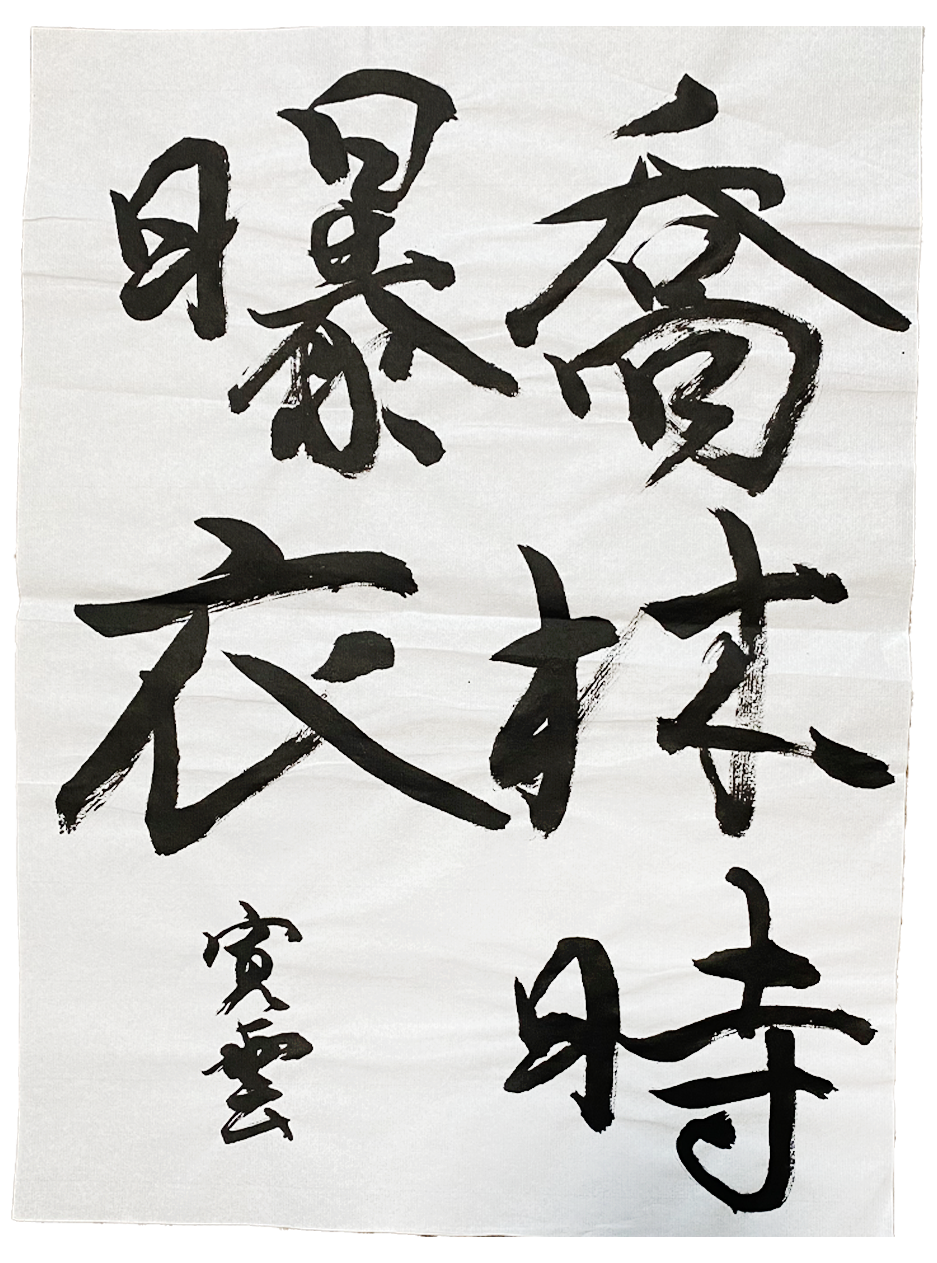 喬林時
曝衣
寅雲